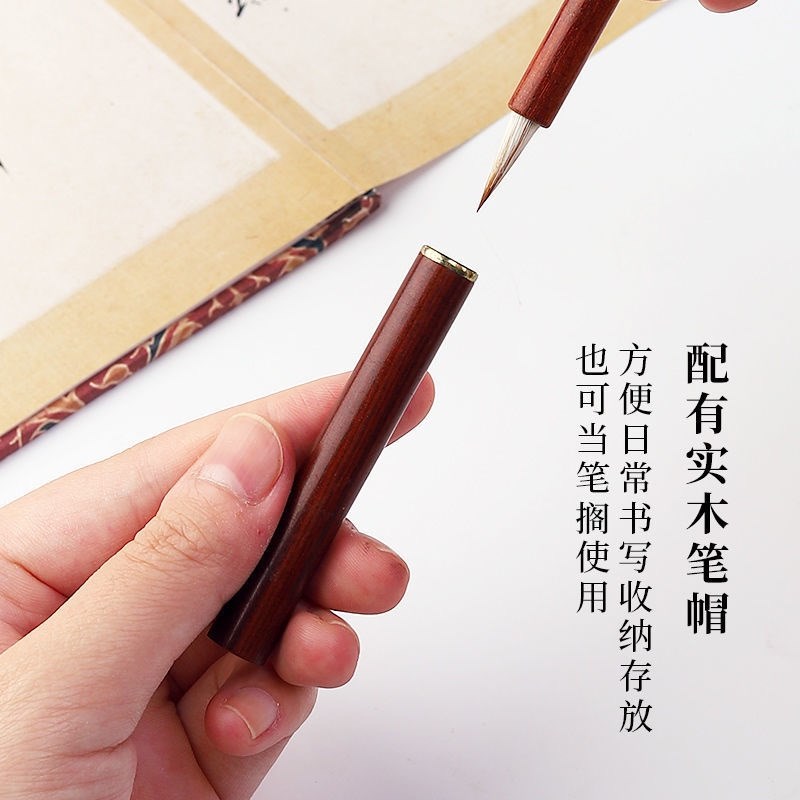 配有实木笔帽
方便日常书写收纳存放
也可当笔搁使用